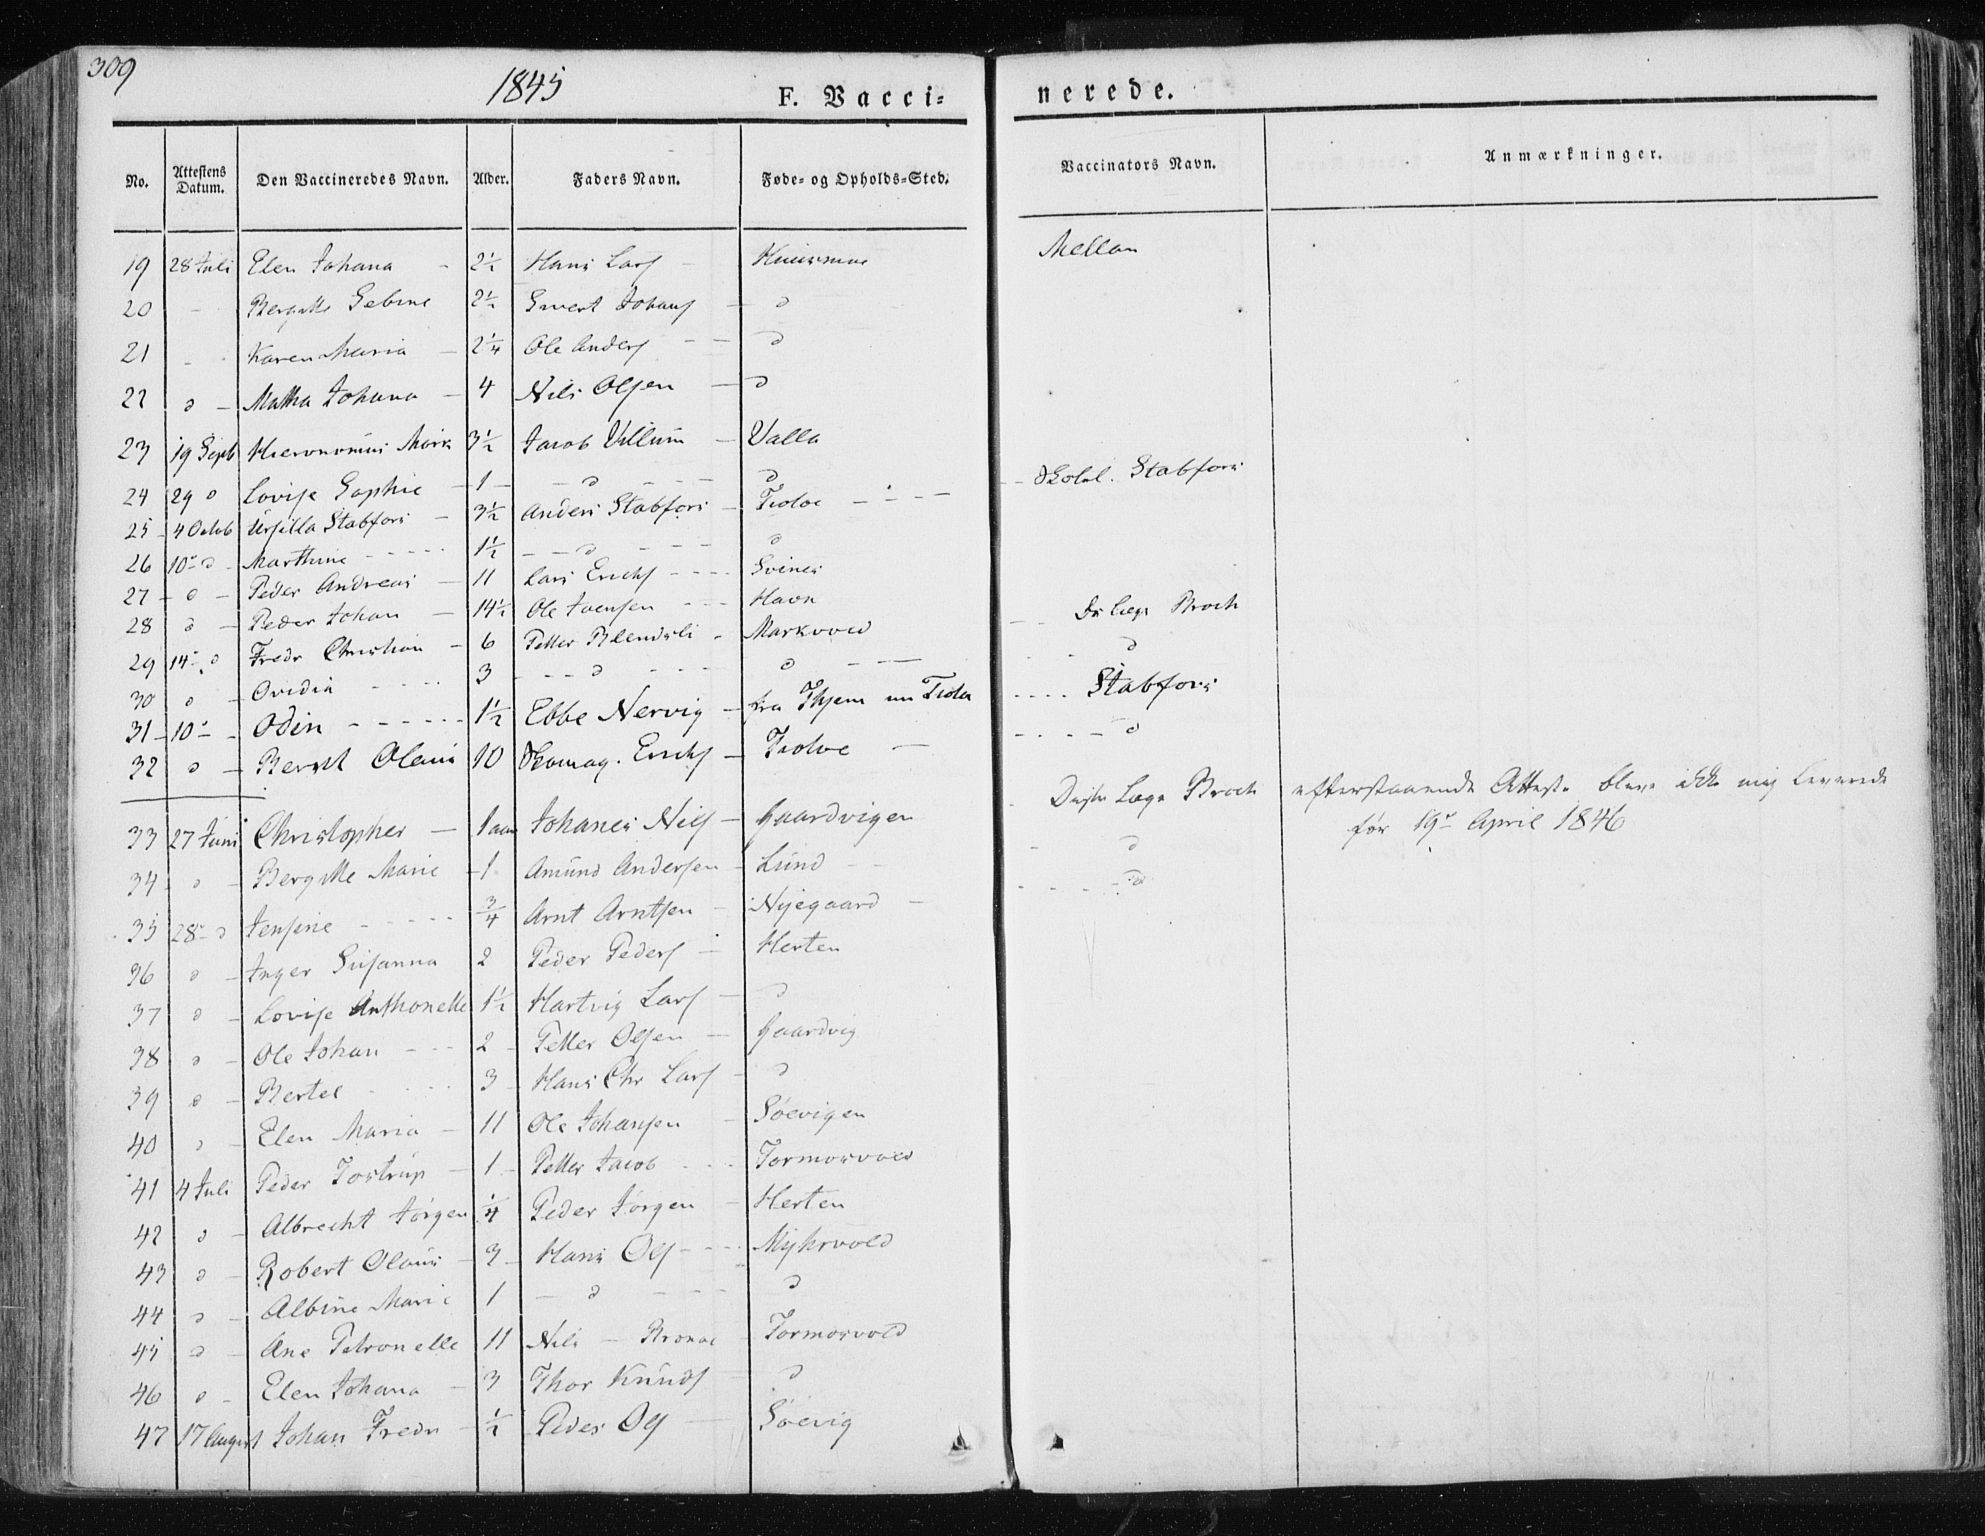 309
1845
F. Vacci=
nerede.
No. Attestens Datum. Den Vaccineredes Navn. Alder. Faders Navn. Føde- og Opholds-Sted. Vaccinators Navn. Anmærkninger.
19 28 Juli Elen Johana - 2½ Hans Lars - Mellon
20 - Bergitte Sebine 2½ Sivert Johans - d
21 - Karen Maria - 2¼ Ole Anders - - d
22 d - Mattha Johana - 4 Nils Olsen - d
23 19 Septb Hieronomus Mark 3½ Jacob Villum - Valla
24 29 d Lovise Sophie - 1 - - d - - - d - - Skolel. Stabfors
25 - 4 Octob Ursilla Stabfors - 3½ Anders Stabfors - Tiolve - - - -
26 10 - d - Marthine - - - - - 1½ - - d - - - d
27 - d - Peder Andreas - 11 Lars Erichs - - - - Svines
28 d - Peder Johan - 14½ Ole Ivensen - - - Havn - - Ds Læge Broch
29 14 - d Fredr Christian - 6 Petter - Markvold - - d
30 d - Ovidia - - - - 3 - - - d - - - d - - -
31 - 10 - - Odin - - - - - - 1½ Ebbe Nervig - fra Thjem nu Tiola - - - - Stabfors
32 d - Bernt Olaus 10 Skomag. Erichs - Tiolve - - - - - d
33 27 Juni Christopher - 1 aar Johanes Nils - Gaardvigen - Læge Broch efterstaaende Atteste bleve ikke mig leverede
før 19 - April 1846
34 - d - Bergitte Marie - 1 Amund Andersen - Lund - - - d
35 28 - d Jensine - - - - - ¾ Arnt Arntsen - Nyegaard - - - - - d
36 d - Inger Susanna 2 Peder Peders - Herten
37 d - Lovise Anthonette 1½ Hartvig Lars - d
38 d - Ole Johan - - - 2 - Petter Olsen - Gaardvig
39 d - Bertel - - - - 3 - Hans Chr Lars - d
40 d - Elen Maria - 11 Ole Johansen - Søevigen
41 4 Juli Peder Tostrup - 1 - Petter Jacob - - - Tormorsvold
42 d - Albrecht Jørgen ¼ Peder Jørgen - Herten
43 d - Robert Olaus - 3 - Hans Ols - - - Myhrvold
44 d - Albine Marie 1 - d - - - d
45 d - Ane Petronelle 11 Nils - - Tormorsvold
46 d - Elen Johana - 3 Thor Knuds - d
47 17 August Johan Fredr - ½ Peder Ols - Søevig